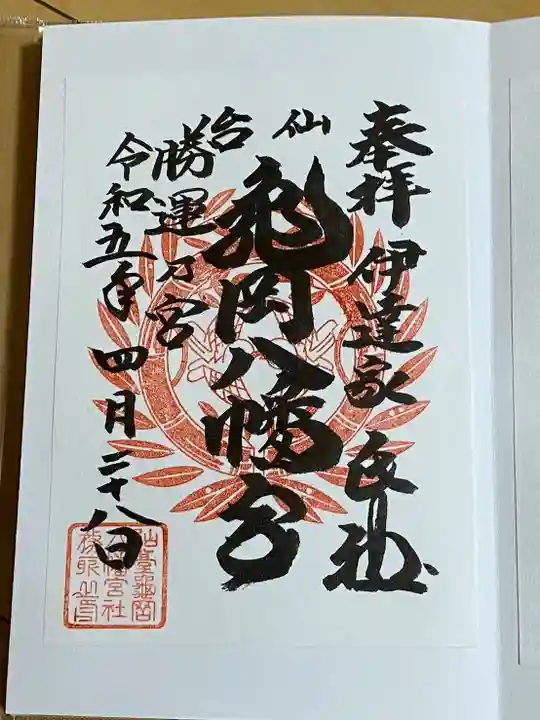 奉拝 伊達家氏神
仙台
亀岡八幡宮
勝運乃宮
令和五年 四月二十八日
仙臺龜岡
八幡宮社
務所之印